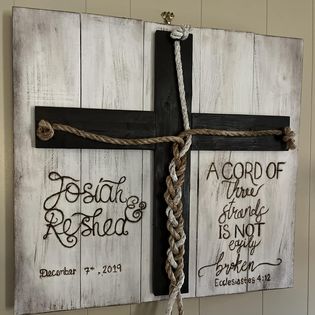 Josiah
&
Reshed
December 7th, 2019
A CORD OF
three
strands
IS NOT
easily
broken
Ecclesiastes 4:12